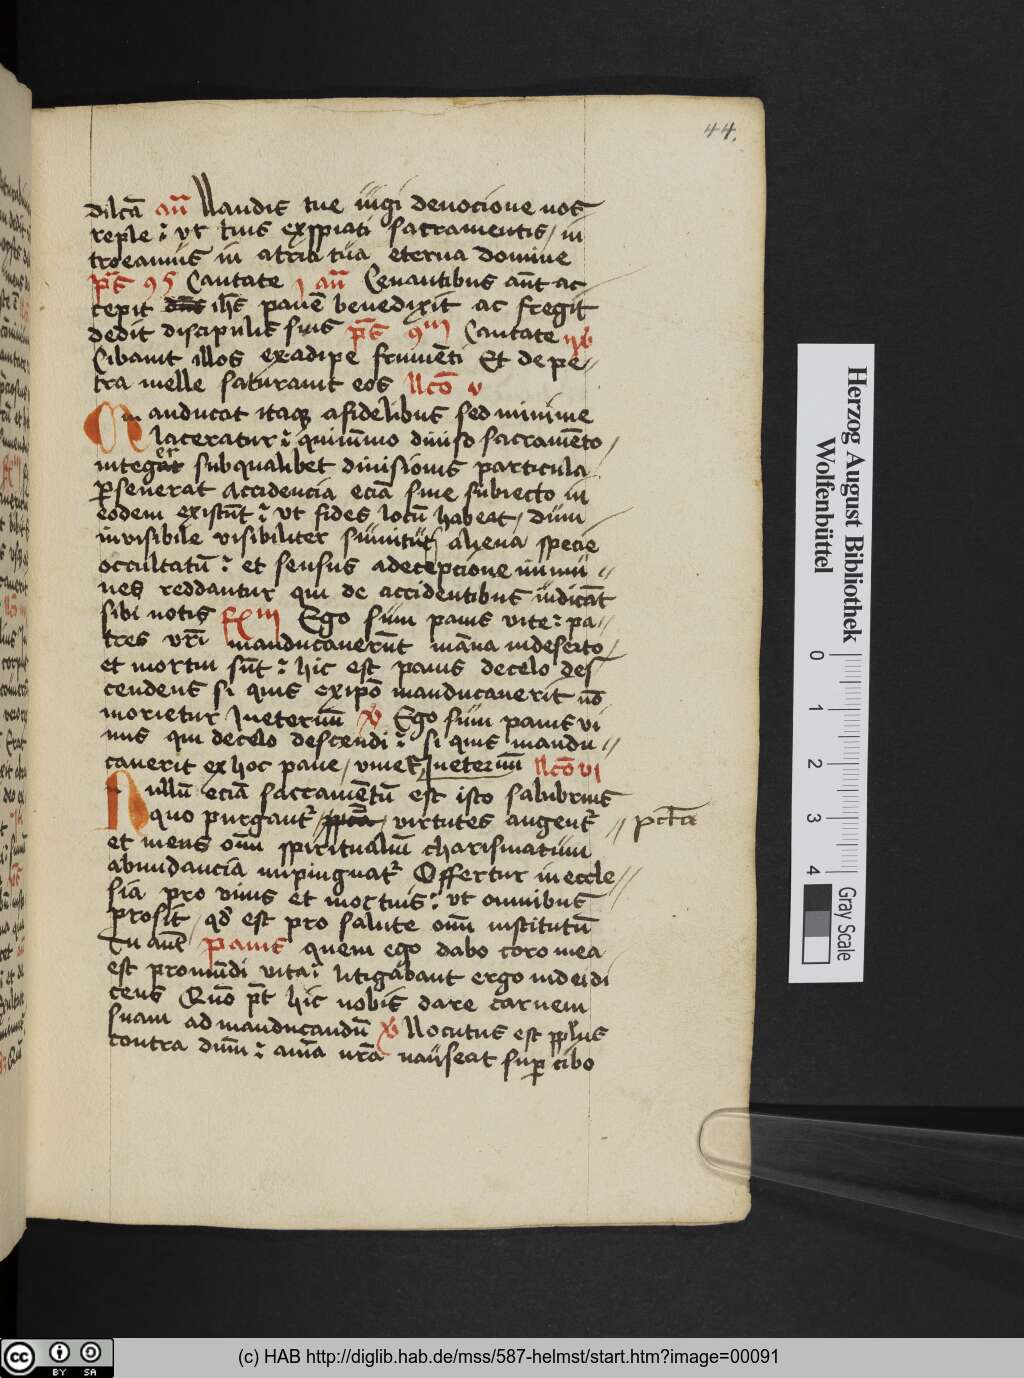 44.
dilcā añ llaudis tue iūgi deuocione nos
reple : vt tuis exspiati sacramentis / in
troeamus in atria tua eterna domine
p̄s 95 Cantate añ Cenantibus aūt ac
cepit ih̄s panē benedixit ac fregit
dedit discipulis suis p̄s Cantate
Cibauit illos exadipe frumēti Et de pe
tra melle saturauit eos llcō v
Manducat itaq afidelibus sed minime
laceratur : quimmo diuiso sacramēto /
integer sub qualibet diuisionis particula
p̄seuerat Accidencia eciā sine subiecto in
eodem existūt : vt fides locū habeat / dum
invisibile visibiliter sumitur aliena specie
occultatū : et sensus adecepcione immu //
nes reddantur qui de accidentibus iudicāt
sibi notis Rx iii Ego sum panis vite : pa //
tres vr̄i manducauerūt māna indeserto /
et mortui sūt : hic est panis decelo des
cendens si quis exipō manducauerit nō
morietur Ineternū v Ego sum panis vi
uus qui decelo descendi : si quis mandu //
cauerit ex hoc pane / viuet Ineternū llcō vi
Nullū eciā sacramētū est isto salubrius
quo purgant virtutes augent // pctā
et mens om̄ spiritualiū charismatum
abundancia inpinguat Offertur in eccle //
sia pro viuis et mortuis : vt omnibus
prosit / qd est pro salute om̄ institutū
Panis quem ego dabo caro mea
est promūdi vita : litigabant ergo iudei di
cens Quō pt hic nobis dare carnem
suam ad manducandū v llocutus est pplus
contra dn̄m : aīa nr̄a nauseat sup cibo
Herzog August Bibliothek
Wolfenbüttel
0 1 2 3 4
Gray Scale
cc BY SA
(c) HAB http://diglib.hab.de/mss/587-helmst/start.htm?image=00091